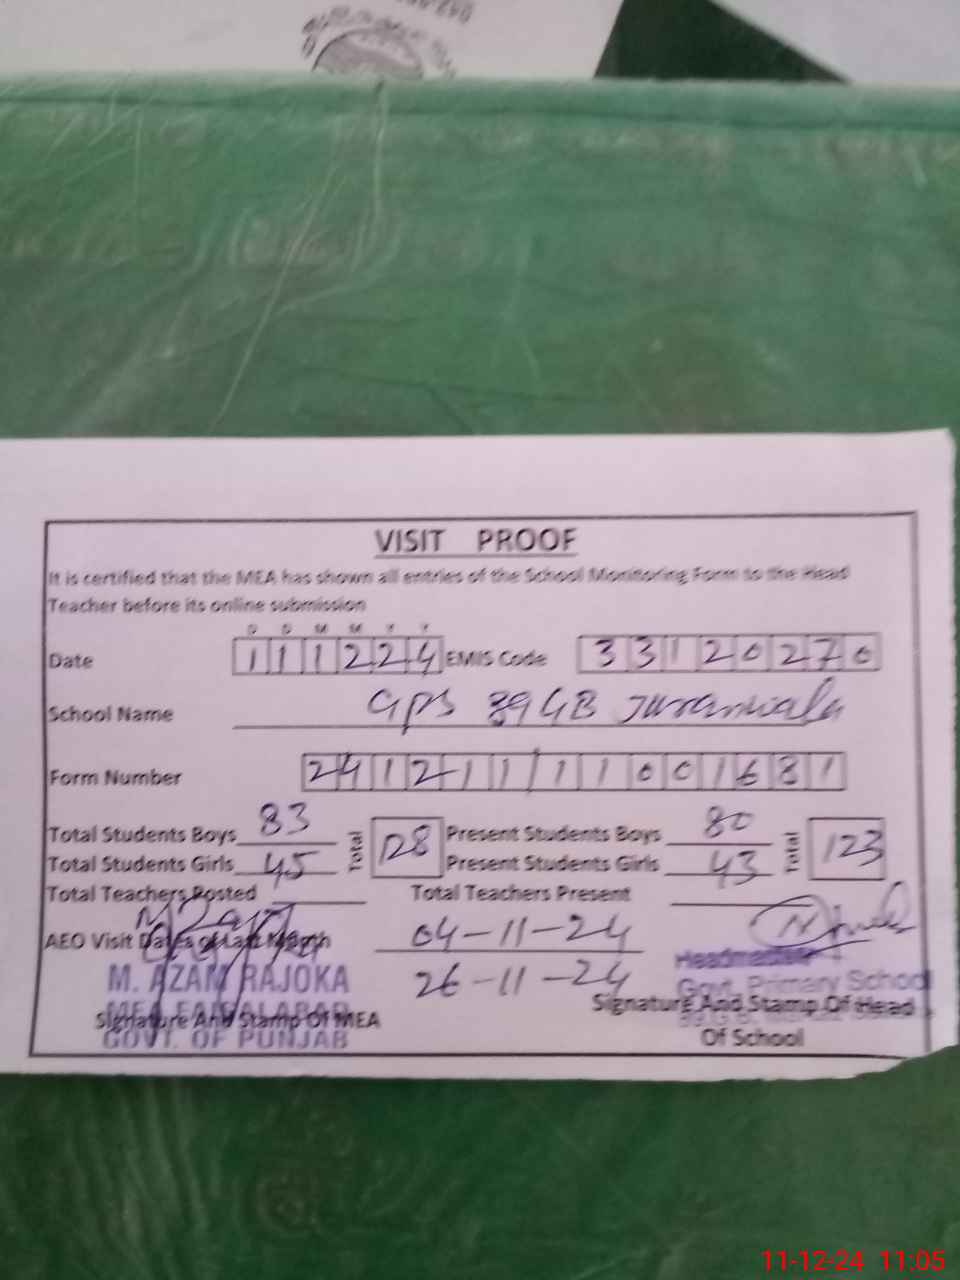 VISIT PROOF
It is certified that the MEA has shown all entries of the School Monitoring Form to the Head
Teacher before its online submission
D D M M Y Y
Date 111224 EMIS Code 33120270
School Name GPS 89 GB Juranwala
Form Number 24121111001681
Total Students Boys 83 Total 128 Present Students Boys 80 Total 123
Total Students Girls 45 Present Students Girls 43
Total Teachers Posted Total Teachers Present
AEO Visit Dates of Last Month 04-11-24
26-11-24
M. AZAM RAJOKA
MEA FAISALABAD
GOVT. OF PUNJAB
Signature And Stamp Of MEA
Headmaster
Govt. Primary School
Signature And Stamp Of Head
Of School
11-12-24 11:05